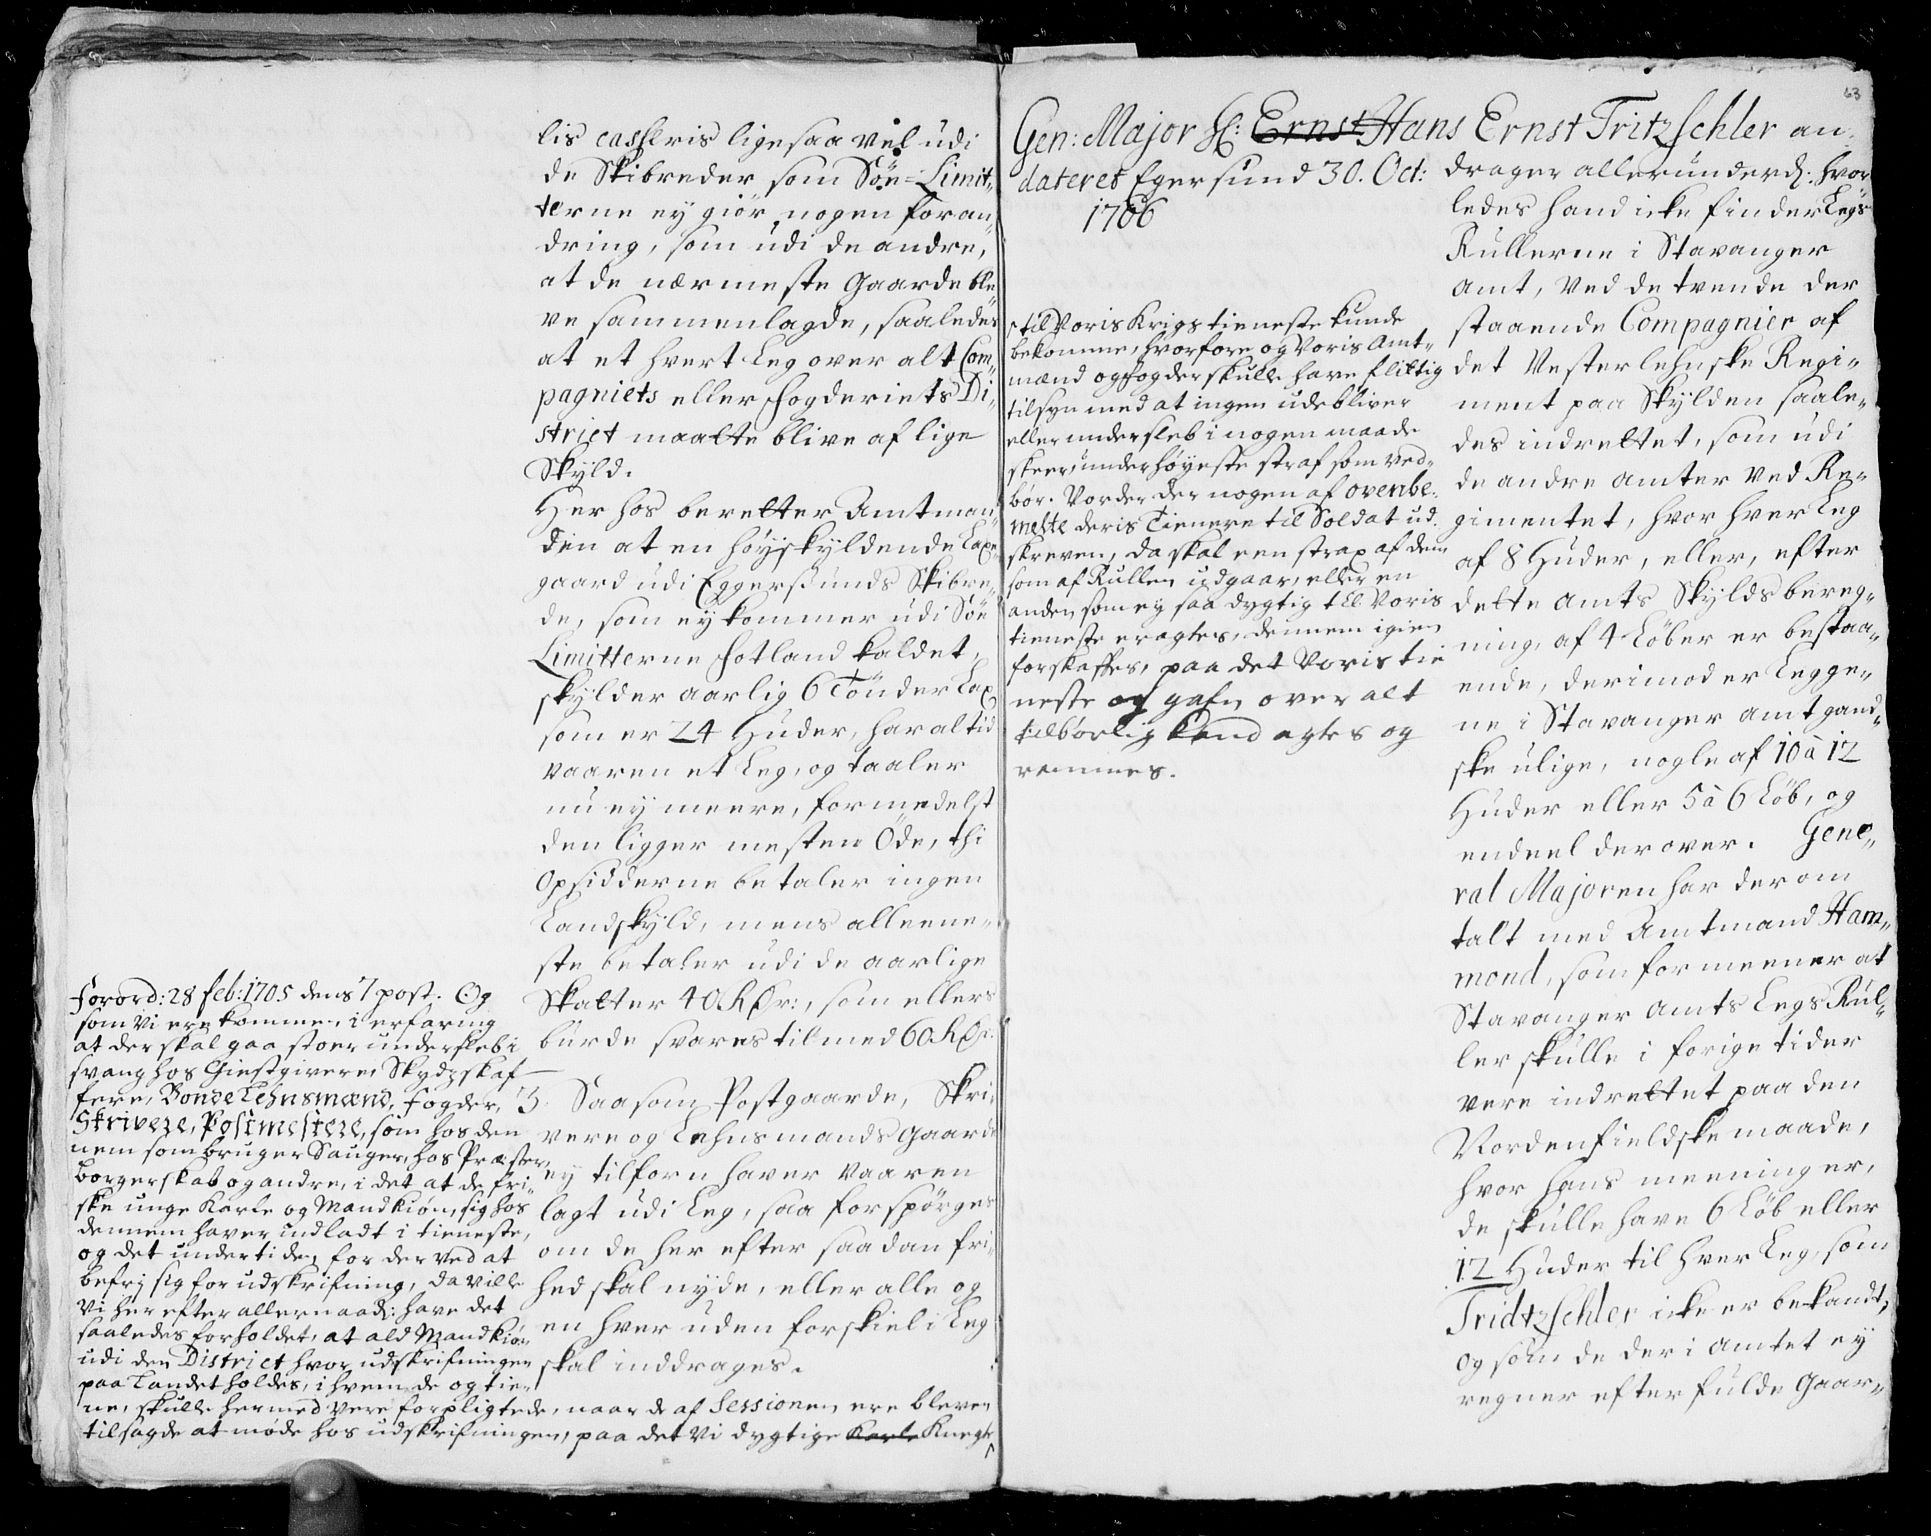 lis casseris ligesaa vel udi
de Skibreder som Söe-Limit„
terne ey giör nogen foran„
dring, som udi de andre,
at de nærmeste Gaarde ble„
ve sammenlagde, saaledes
at et hvert Leg over alt Com„
pagniets eller fogderiets Di„
strict maatte blive af lige
Skyld.
Her hos beretter Amtman„
den at en höyskyldende Laxe„
gaard udi Eggersunds Skibre„
de, som ey kommer udi Söe
Limitterne fotland kaldet,
skylder aarlig 6 Tönder Lax
som er 24 Huder, har altid
vaaren et Leg, og taaler
nu ey meere, formedelst
den ligger mesten Öde, thi
Opsidderne betaler ingen
Landskyld, mens alleene„
ste betaler udi de aarlige
Skatter 40 Rdr:, som ellers
burde svares til med 60 Rdr.
3. Saasom Postgaarde, Skri„
vere og Lehnsmands Gaarde
ey tilforn haver vaaren
lagt udi Leg, saa forspörges
om de her efter saadan fri„
hed skal nyde, eller alle og
en hver uden forskiel i Leg
skal inddrages.
Forord: 28 feb: 1705 dens 7 post. Og
som Vi ere komme i erfaring
at der skal gaa stoer underslebi
svang hos Giestgivere, Skydzskaf„
fere, BondeLehnsmænd, fogder,
Skrivere, Postmestere, som hos den
nem som bruger Sauger, hos Præster,
borgerskab og andre, i det at de fri„
ske unge Karle og Mandkiön, sig hos
dennem haver indladt i tieneste,
og det undertiden for der ved at
befrj sig for udskrifning, da ville
Vi her efter allernaad: have det
saaledes forholdet, at ald Mandkiön
udi den District hvor udskrifningen
paa Landet holdes, i hvem de og tie„
ne, skulle hermed vere forpligtede, naar de af Sessionen ere bleven
tilsagde at møde hos udskrifningen, paa det Vi dygtige Karle Knegte
63
Gen: Major Hr: Ernst Hans Ernst Tritzschler an„
dateret Egersund 30. Oct:
1706
til Voris Krigs tieneste kunde
bekomme, hvorfore og Voris Amt„
mænd og fogder skulle have flittig
tilsyn med at ingen udebliver
eller undersleb i nogen maade
skeer, under höyeste straf som ved„
bør. Vorder der nogen af ovenbe„
melte deris Tienere til Soldat ud„
skreven, da skal een strax af dem
som af Rullen udgaar, eller en
anden som ey saa dygtig til Voris
tieneste eragtes, dennem igien
forskaffes, paa det Voris tie
neste og gafn over alt
tilbørlig kand agtes og
rammes.
drager allerunderd. hvor
ledes hand icke finder Legs
Rullerne i Stavanger
Amt, ved de trende der
staaende Compagnier af
det Vesterlehnske Regi„
ment paa Skylden saale„
des indrettet, som udi
de andre Amter ved Re„
gimentet, hvor hver Leg
af 8 Huder, eller, efter
dette Amts Skylds bereg„
ning, af 4 Löber er bestaa„
ende, derimod er Legge„
ne i Stavanger Amt gand„
ske ulige, nogle af 10 à 12
Huder eller 5 à 6 Löb, og
endeel derover. Gene„
ral Majoren har derom
talt med Amtmand Ham„
mond, som formeener at
Stavanger Amts Legs Rul„
ler skulle i forige tider
vere indrettet paa den
Nordenfieldske maade,
hvor hans meening er,
de skulle have 6 Löb eller
12 Huder til hver Leg, som
Tridtzschler icke er bekandt,
og som de der i Amtet ey
regner efter fulde Gaar„